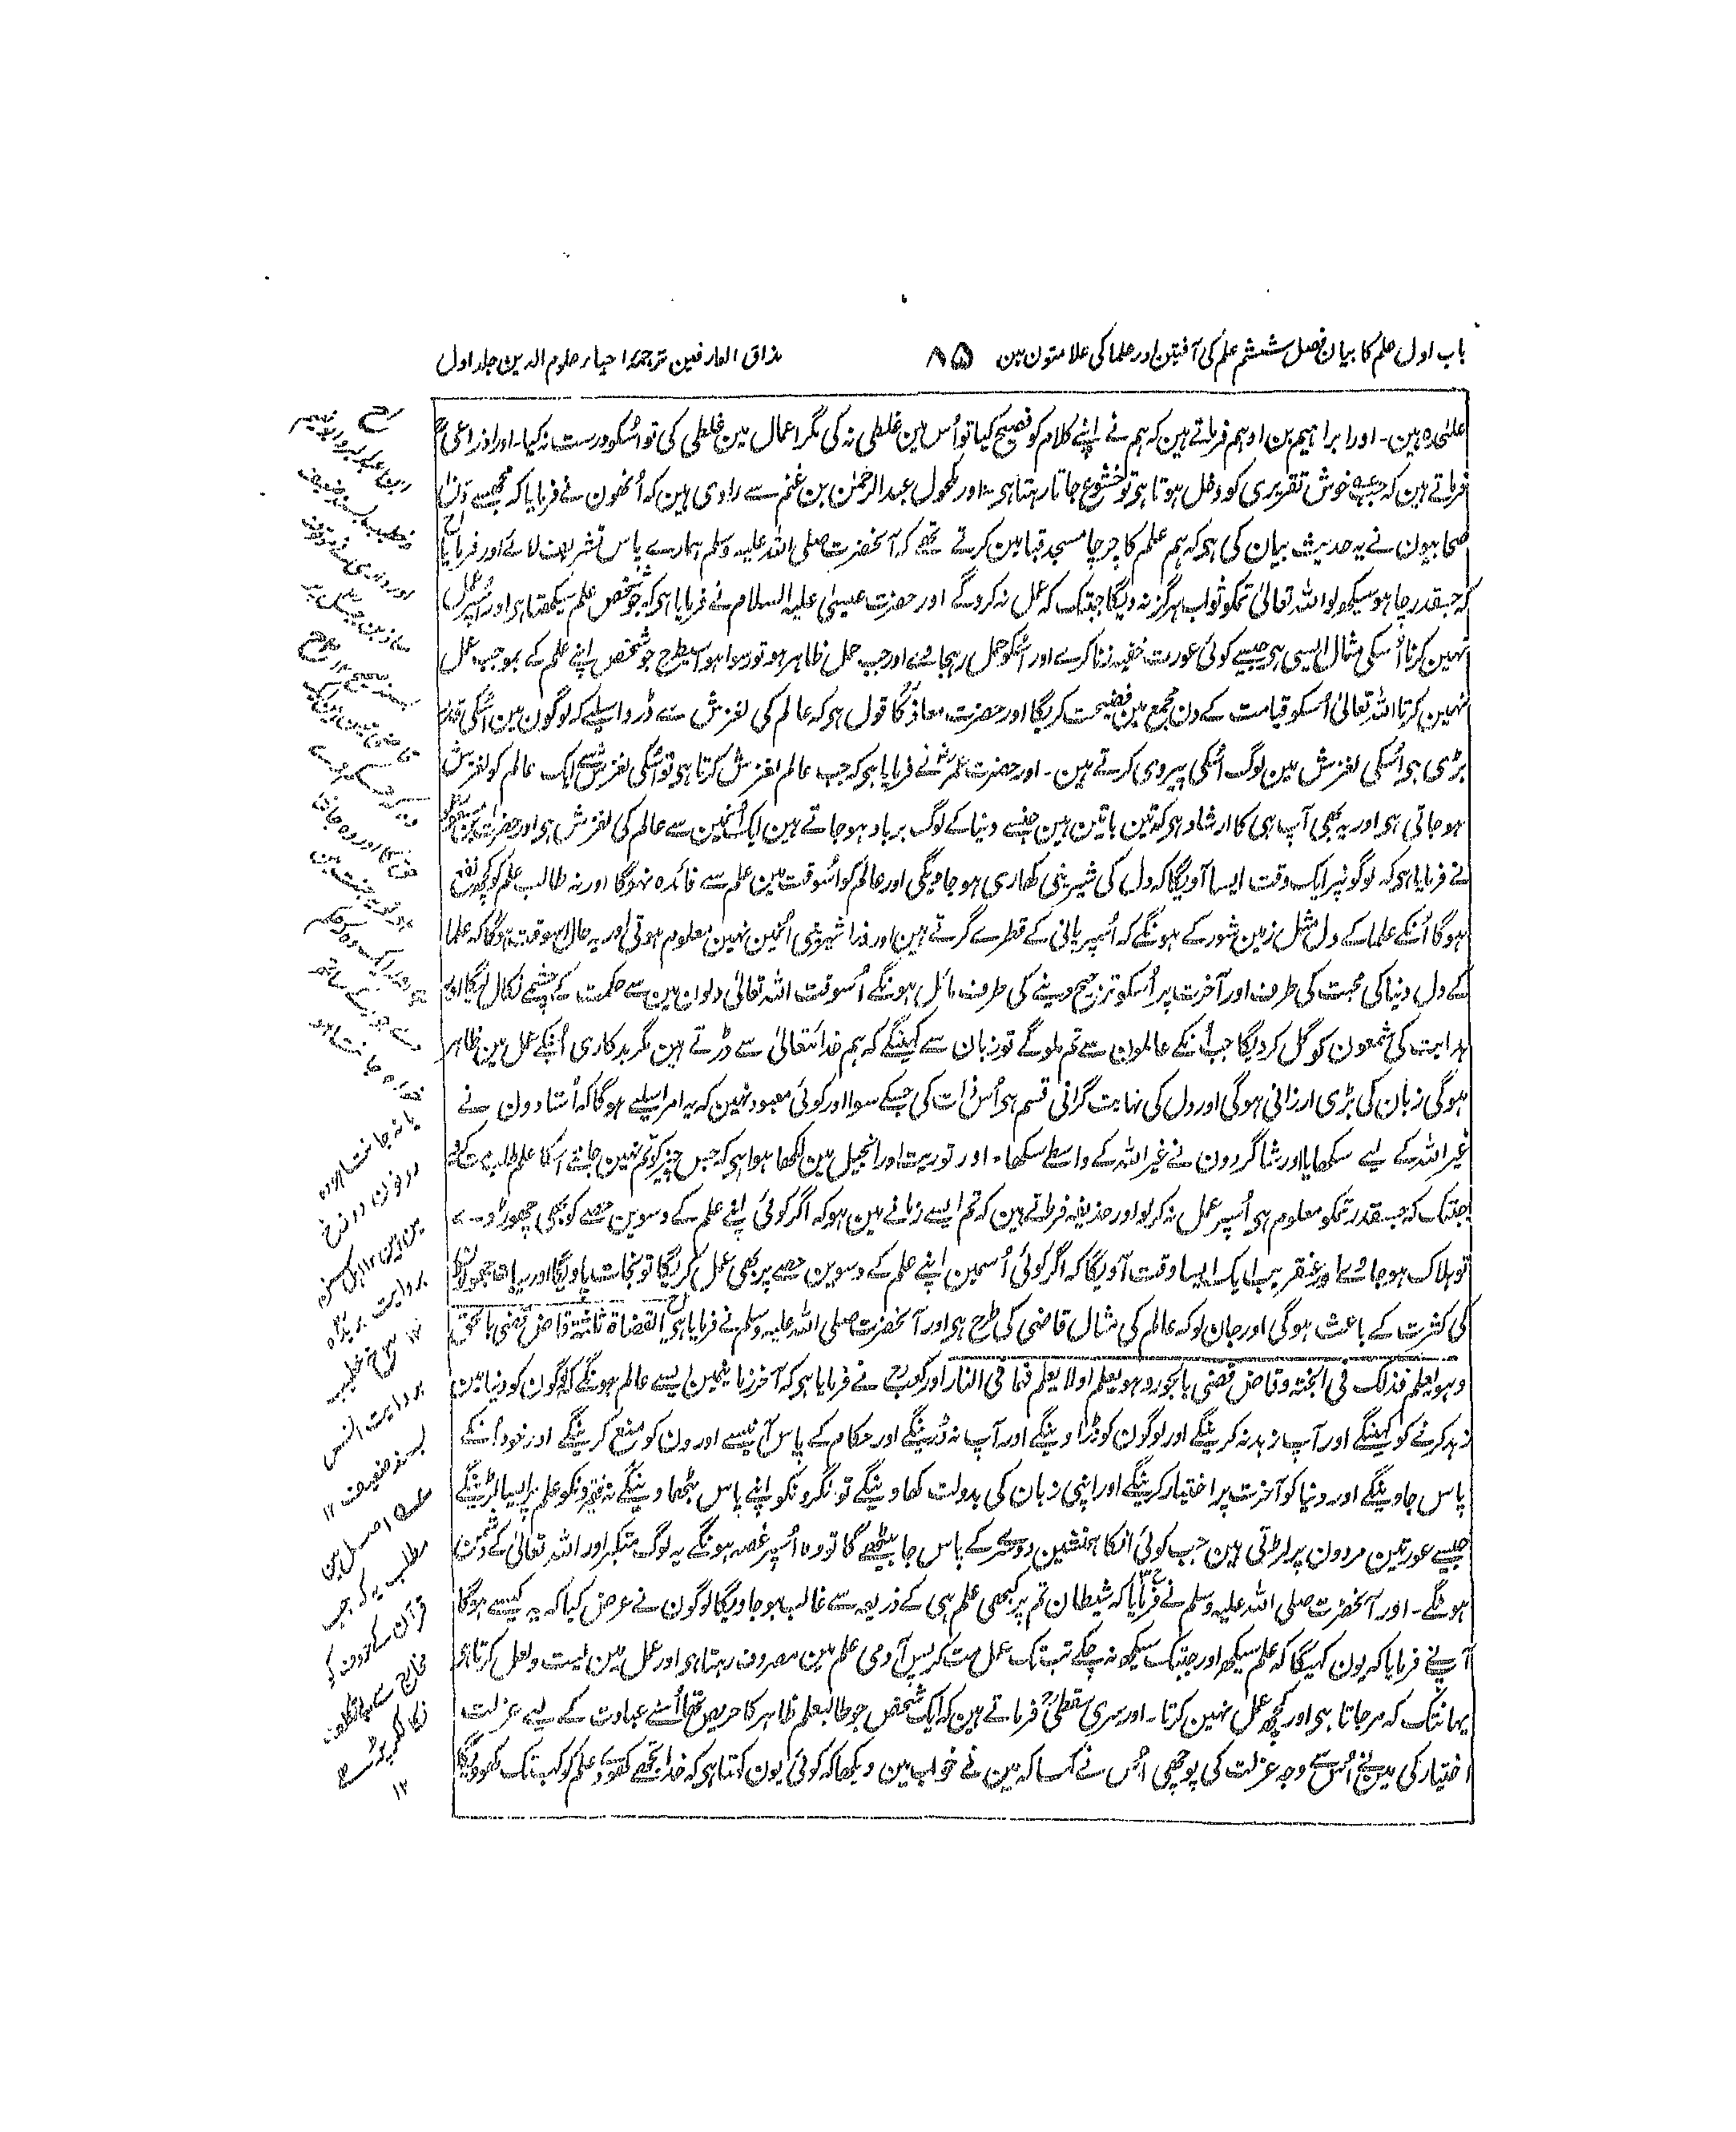 باب اول علم کا بیان فصل ششم علم کی آفتین اور علما کی علامتون مین ۸۵ مذاق العارفین ترجمۂ احیاء علوم الدین جلد اول
علٰحدہ ہین۔ اور ابراہیم بن ادہم فرماتے ہین کہ ہم نے اپنے کلام کو فصیح کیا تو اُس مین غلطی نہ کی مگر اعمال مین غلطی کی تو اُسکو درست نہ کیا۔ اور اوزاعی
فرماتے ہین کہ جب خوش تقریری کو دخل ہوتا ہی تو خشوع جاتا رہتا ہی۔ اور مکحول عبد الرحمٰن بن غنم سے راوی ہین کہ اُنھون نے فرمایا کہ مجھسے دس
صحابیون نے یہ حدیث بیان کی ہی کہ ہم علم کا چرچا مسجد قبا مین کرتے تھے کہ آنحضرت صلی اللہ علیہ وسلم ہمارے پاس تشریف لائے اور فرمایا
کہ جسقدر چاہو سیکھ لو اللہ تعالیٰ تمکو ثواب ہرگز نہ دیگا جبتک کہ عمل نہ کروگے اور حضرت عیسیٰ علیہ السلام نے فرمایا ہی کہ جو شخص علم سیکھتا ہی اور اُسپر عمل
نہین کرتا اُسکی مثال ایسی ہی جیسے کوئی عورت خفیہ زنا کرے اور اُسکو حمل رہجائے اور جب حمل ظاہر ہو تو رسوا ہو اسیطرح جو شخص اپنے علم کے بموجب عمل
نہین کرتا اللہ تعالیٰ اُسکو قیامت کے دن مجمع مین فضیحت کریگا اور حضرت معاذ کا قول ہی کہ عالم کی لغزش سے ڈرو اسلیے کہ لوگون مین اُسکی قدر
بڑی ہی اُسکی لغزش مین لوگ اُسکی پیروی کرتے ہین۔ اور حضرت عمر نے فرمایا ہی کہ جب عالم لغزش کرتا ہی تو اُسکی لغزش سے ایک عالم کو لغزش
ہو جاتی ہی اور یہ بھی آپ ہی کا ارشاد ہی کہ تین باتین ہین جنسے دنیا کے لوگ برباد ہو جاتے ہین ایک اُنمین سے عالم کی لغزش ہی اور حضرت ابن مسعود
نے فرمایا ہی کہ لوگونپر ایک وقت ایسا آویگا کہ دل کی شیرینی کھاری ہو جاویگی اور عالم کو اُسوقت مین علم سے فائدہ نہوگا اور نہ طالب علم کو کچھ نفع
ہوگا اُنکے علما کے دل مثل زمین شور کے ہونگے کہ اُسپر پانی کے قطرے گرتے ہین اور ذرا شیرینی اُنمین نہین معلوم ہوتی اور یہ حال اسوقت ہوگا کہ علما
کے دل دنیا کی محبت کی طرف اور آخرت پر اُسکو ترجیح دینے کی طرف مائل ہونگے اُسوقت اللہ تعالیٰ دلون مین سے حکمت کے چشمے نکال لیگا اور
ہدایت کی شمعون کو گل کر دیگا جب اُنکے عالمون سے تم ملوگے تو زبان سے کہینگے کہ ہم خدا تعالیٰ سے ڈرتے ہین مگر بدکاری اُنکے عمل مین ظاہر
ہوگی زبان کی بڑی ارزانی ہوگی اور دل کی نہایت گرانی قسم ہی اُس ذات کی جسکے سوا اور کوئی معبود نہین کہ یہ امر اسلیے ہوگا کہ اُستادون نے
غیر اللہ کے لیے سکھایا اور شاگردون نے غیر اللہ کے واسطے سیکھا۔ اور توریت اور انجیل مین لکھا ہوا ہی کہ جس چیز کو تم نہین جانتے اُسکا علم طلب مت کرو
جبتک کہ جسقدر تمکو معلوم ہی اُسپر عمل نہ کر لو اور حذیفہ فرماتے ہین کہ تم ایسے زمانے مین ہو کہ اگر کوئی اپنے علم کے دسوین حصے کو بھی چھوڑ دے
تو ہلاک ہو جائے اور عنقریب ایک ایسا وقت آویگا کہ اگر کوئی اُسمین اپنے علم کے دسوین حصے پر بھی عمل کریگا تو نجات پاویگا اور یہ بات جھوٹون
کی کثرت کے باعث ہوگی اور جان لو کہ عالم کی مثال قاضی کی طرح ہی اور آنحضرت صلی اللہ علیہ وسلم نے فرمایا ہی القضاۃ ثلثۃ قاض قضی بالحق
وہو یعلم فذلک فی الجنۃ وقاض قضی بالجور وہو یعلم او لا یعلم فہما فی النار اور کعب نے فرمایا ہی کہ آخر زمانیمین ایسے عالم ہونگے کہ لوگون کو دنیا مین
زہد کرنے کو کہینگے اور آپ زہد نہ کرینگے اور لوگون کو ڈراوینگے اور آپ نہ ڈرینگے اور حکام کے پاس آنیسے اورون کو منع کرینگے اور خود اُنکے
پاس جاوینگے اور دنیا کو آخرت پر اختیار کرینگے اور اپنی زبان کی بدولت کھاوینگے تونگرونکو اپنے پاس بٹھاوینگے نہ فقیرونکو علم پر ایسا لڑینگے
جیسے عورتین مردون پر لڑتی ہین جب کوئی اُنکا ہمنشین دوسرے کے پاس جا بیٹھے گا تو وہ اُسپر غصہ ہونگے یہ لوگ متکبر اور اللہ تعالیٰ کے دشمن
ہونگے۔ اور آنحضرت صلی اللہ علیہ وسلم نے فرمایا کہ شیطان تم پر کبھی علم ہی کے ذریعہ سے غالب ہو جاویگا لوگون نے عرض کیا کہ یہ کیسے ہوگا
آپنے فرمایا کہ یون کہیگا کہ علم سیکھ اور جبتک سیکھ نہ چکے تب تک عمل مت کر پس آدمی علم مین مصروف رہتا ہی اور عمل مین لیت و لعل کرتا ہی
یہانتک کہ مر جاتا ہی اور کچھ عمل نہین کرتا۔ اور سری سقطی فرماتے ہین کہ ایک شخص جو طالبعلم ظاہر کا حریص تھا اُسنے عبادت کے لیے عزلت
اختیار کی مین نے اُس سے وجہ عزلت کی پوچھی اُس نے کہا کہ مین نے خواب مین دیکھا کہ کوئی یون کہتا ہی کہ خدا تجھے کھو دے علم کو کب تک کھوویگا
بسند صحیح
یا نہ جانتا ہو وہ
دونون دوزخ
مین ہین
بروایت بریدہ
۱۲ خطیب
بروایت انس
بسند ضعیف ۱۲
اصل مین
مطلب یہ کہ جب
قرآن کے حروف کو
مخارج سے
۱۲